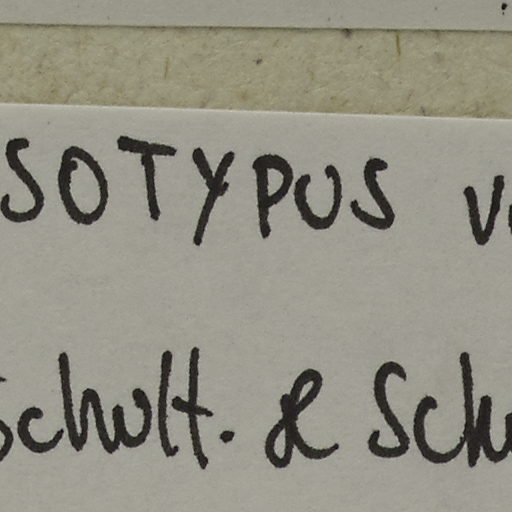 SOTYPUS v
Schult. & Sch